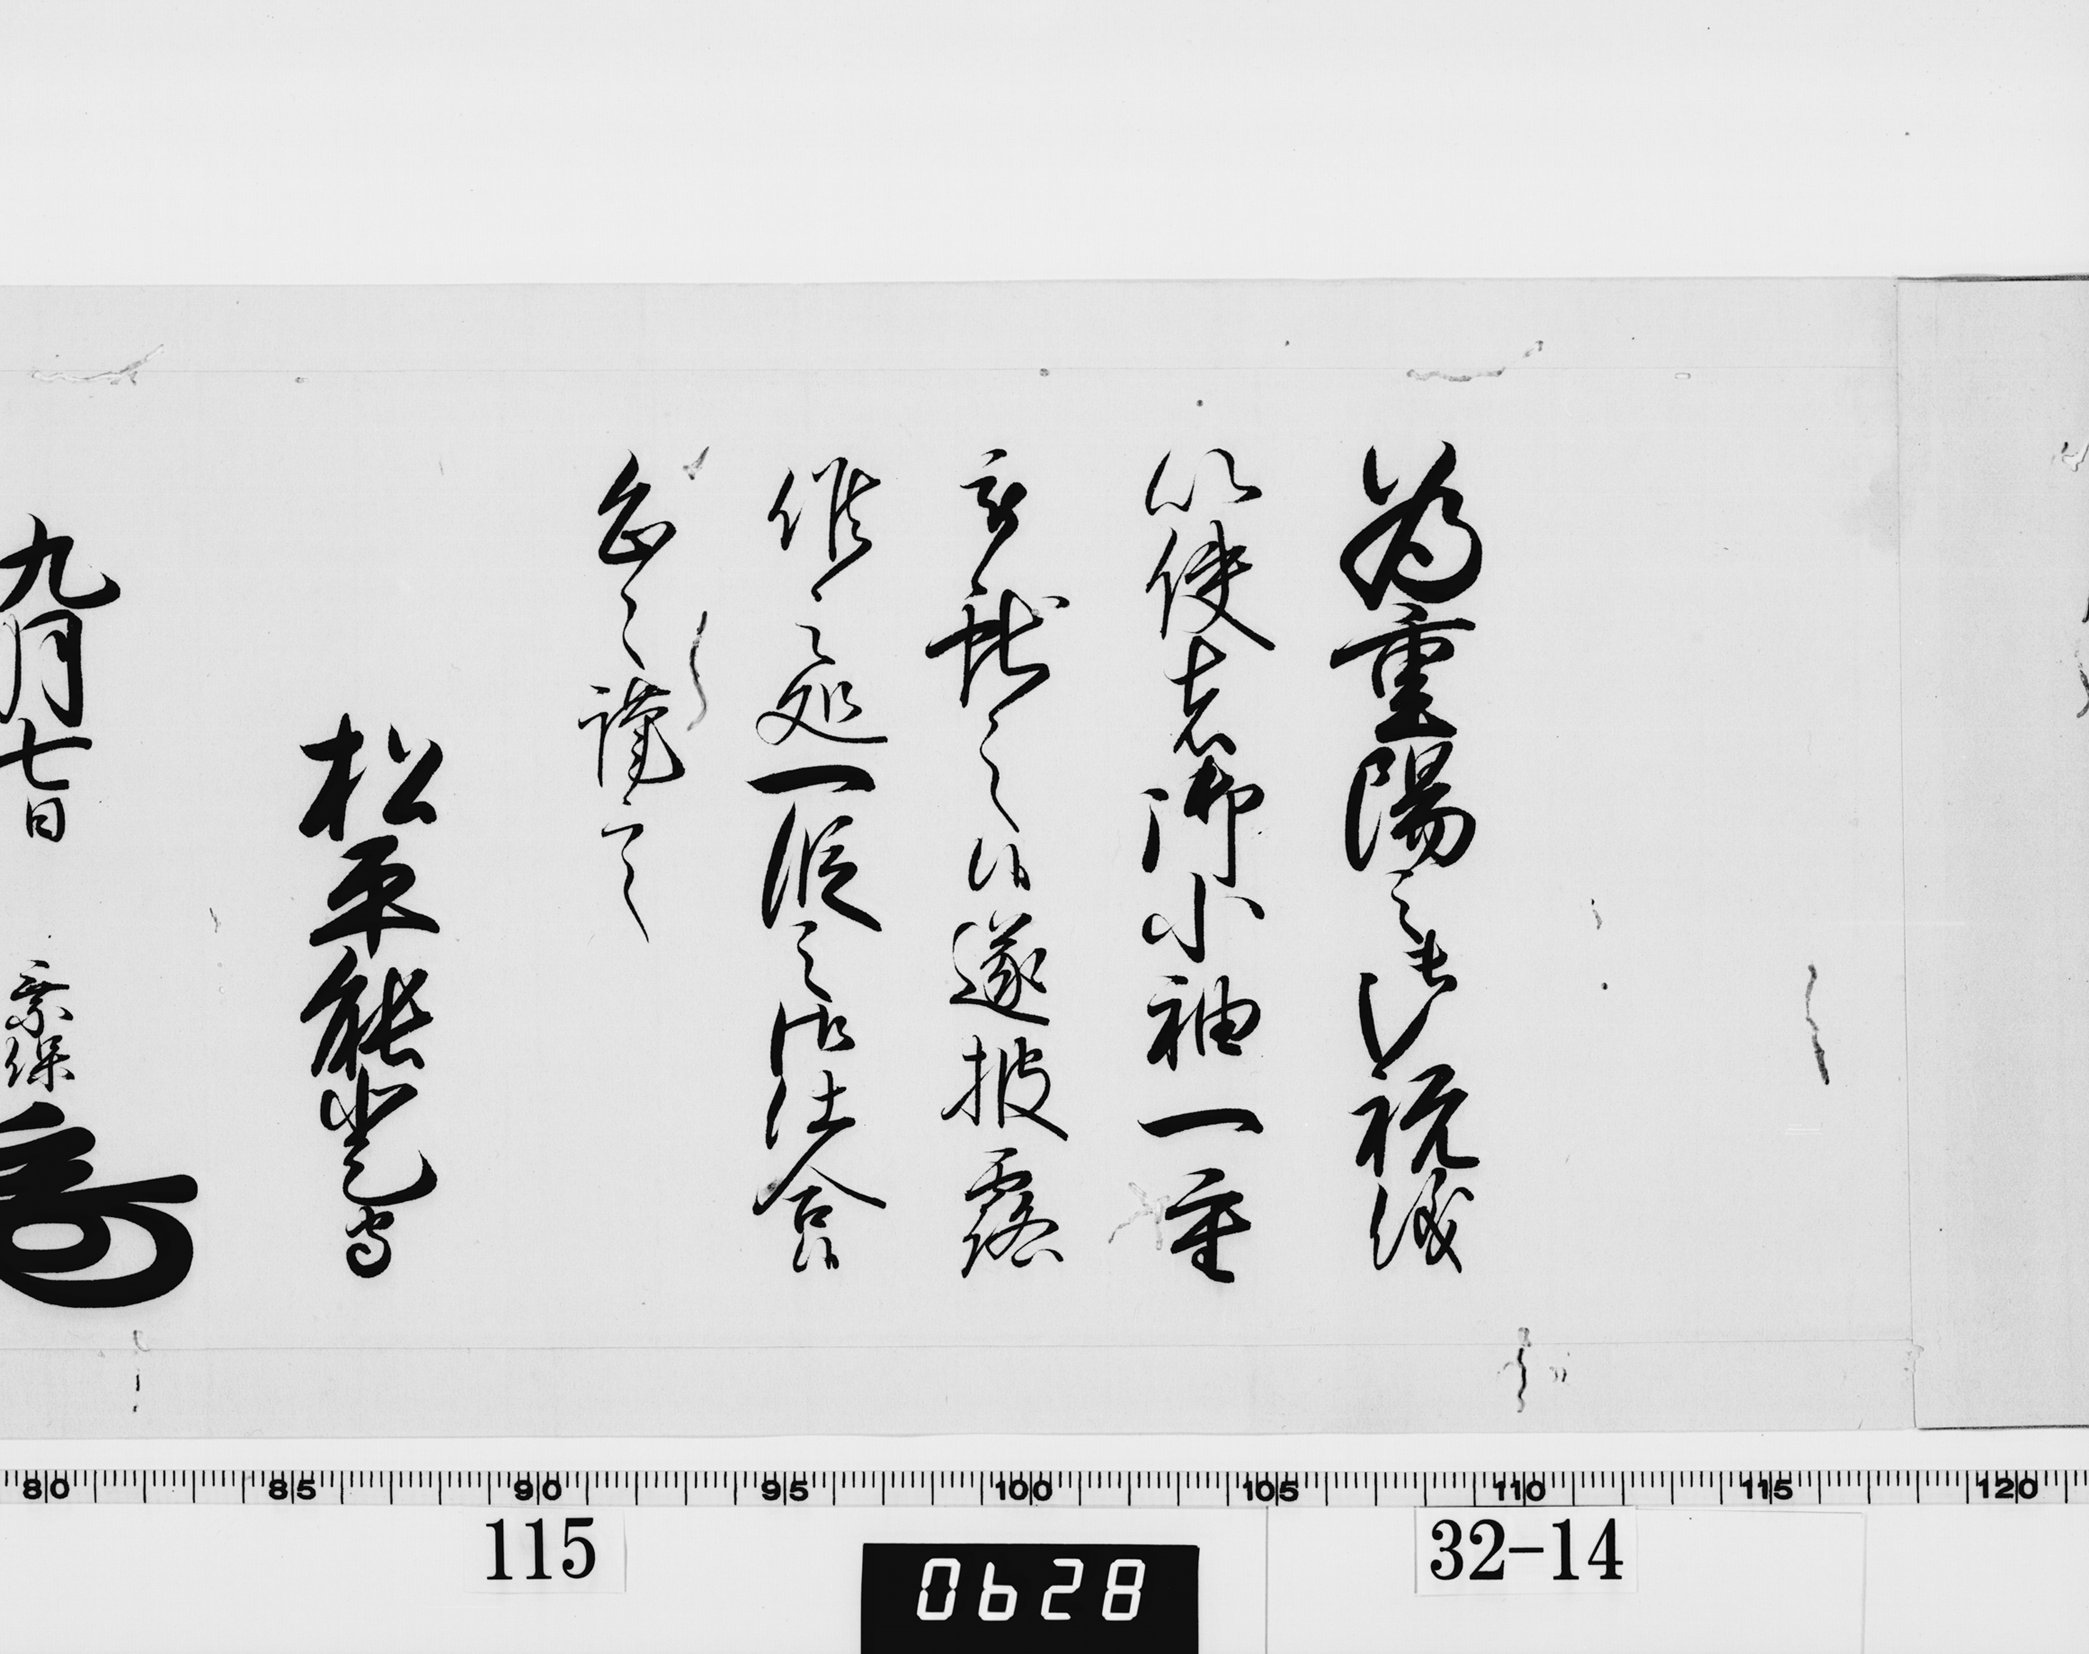 為重陽之御祝儀
以使者御小袖一重
被献之候遂披露
候之処一段之御仕合候
恐々謹言
松平能登守
九月七日 乗保
80 85 90 95 100 105 110 115 120
115
0628
32-14